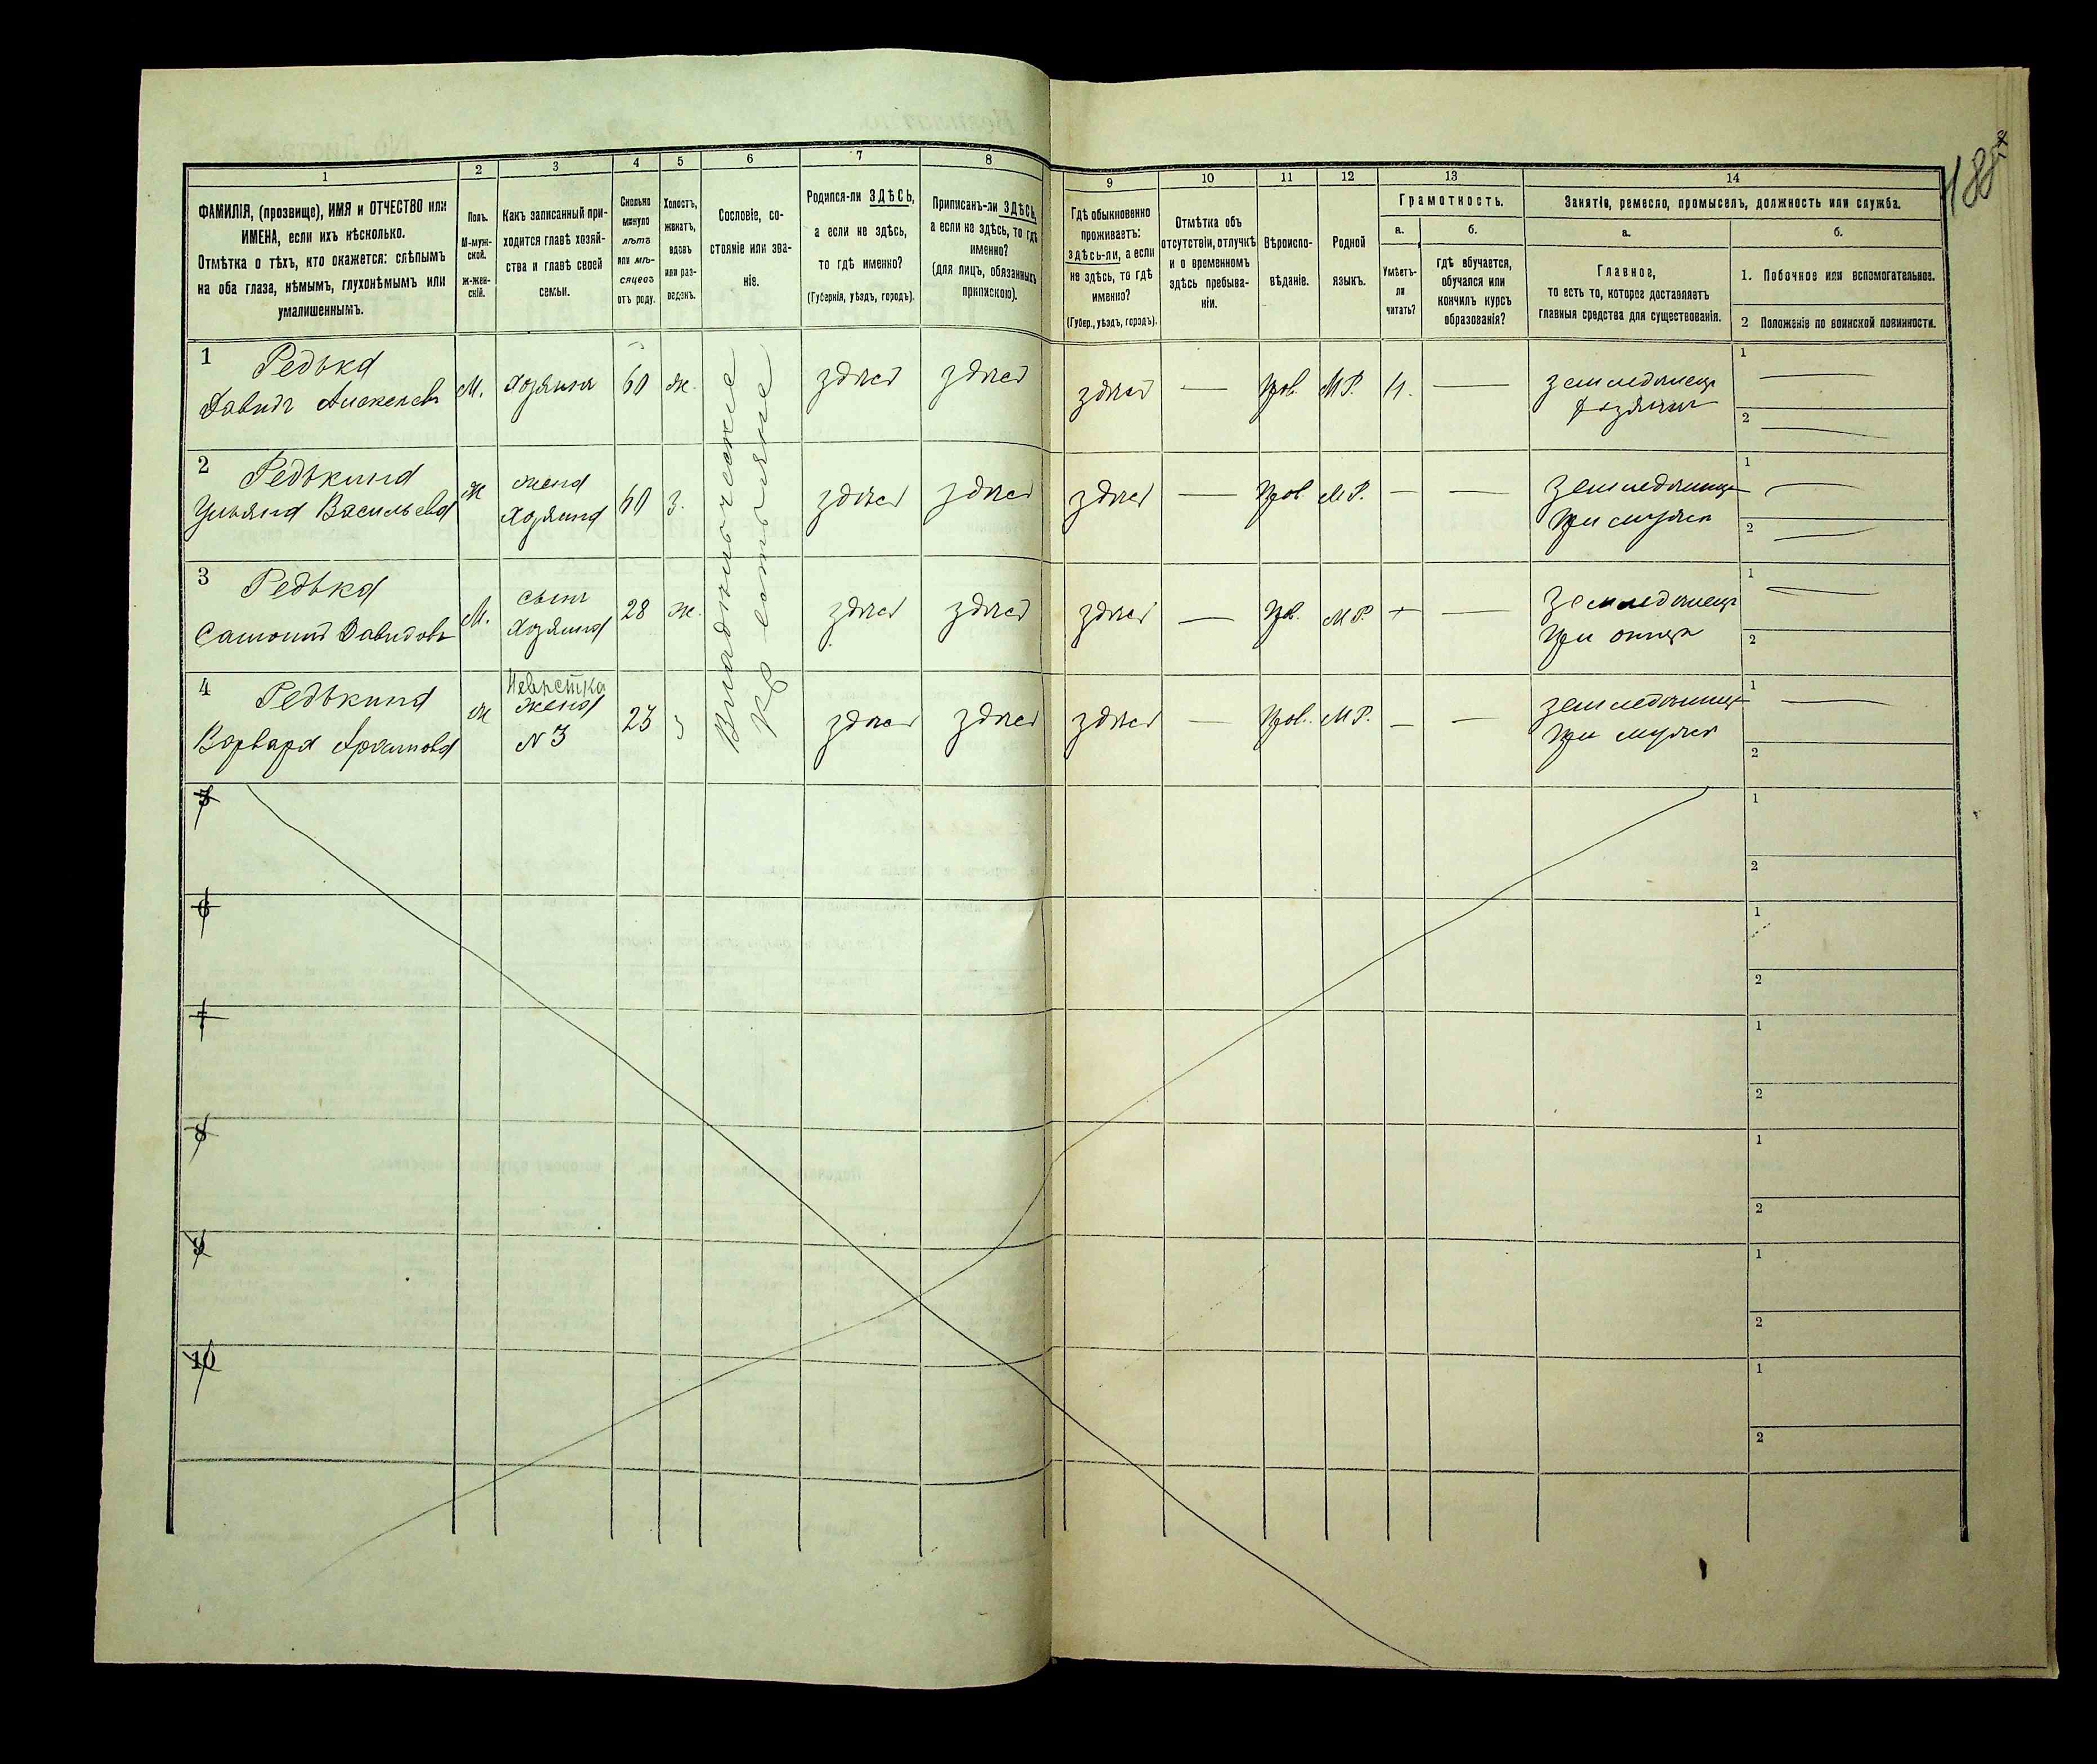 188
1
2
3
4
5
6
7
8
ФАМИЛІЯ, (прозвище), ИМЯ и ОТЧЕСТВО или
ИМЕНА, если ихъ нѣсколько.
Отмѣтка о тѣхъ, кто окажется: слѣпымъ
на оба глаза, нѣмымъ, глухонѣмымъ или
умалишеннымъ.
Полъ.
М-муж-
ской.
ж-жен-
скій.
Какъ записанный при-
ходится главѣ хозяй-
ства и главѣ своей
семьи.
Сколько
минуло
лѣтъ
или мѣ-
сяцевъ
отъ роду.
Холостъ,
женатъ,
вдовъ
или раз-
веденъ.
Сословіе, со-
стояніе или зва-
ніе.
Родился-ли ЗДѢСЬ,
а если не здѣсь,
то гдѣ именно?
(Губернія, уѣздъ, городъ).
Приписанъ-ли ЗДѢСЬ,
а если не здѣсь, то гдѣ
именно?
(для лицъ, обязанныхъ
припискою).
9
10
11
12
13
14
Гдѣ обыкновенно
проживаетъ:
здѣсь-ли, а если
не здѣсь, то гдѣ
именно?
(Губер., уѣздъ, городъ).
Отмѣтка объ
отсутствіи, отлучкѣ
и о временномъ
здѣсь пребыва-
ніи.
Вѣроиспо-
вѣданіе.
Родной
языкъ.
Грамотность.
а.
б.
Умѣетъ-
ли
читать?
гдѣ обучается,
обучался или
кончилъ курсъ
образованія?
Занятіе, ремесло, промыселъ, должность или служба.
а.
б.
Главное,
то есть то, которое доставляетъ
главныя средства для существованія.
1. Побочное или вспомогательное.
2 Положеніе по воинской повинности.
1 Редька
Давидъ Алексеевъ М. Хозяинъ 60 ж. здѣсь здѣсь здѣсь — Прав. М.Р. Н. — земледѣлецъ
хозяинъ
1
2
2 Редькина
Ульяна Васильева ж жена
Хозяина 60 З. здѣсь здѣсь здѣсь — Прав. М.Р. — — земледѣлица
при мужѣ
1
2
3 Редька
Самонъ Давидовъ М. сынъ
Хозяина 28 ж. здѣсь здѣсь здѣсь — Пр. М.Р. + — земледѣлецъ
при отцѣ
1
2
4 Редькина
Варвара ж Невѣстка
жена
№ 3 23 З здѣсь здѣсь здѣсь — Прав. М.Р. — — земледѣлица
при мужѣ
1
2
Кр
5
1
2
6
1
2
7
1
2
8
1
2
9
1
2
10
1
2